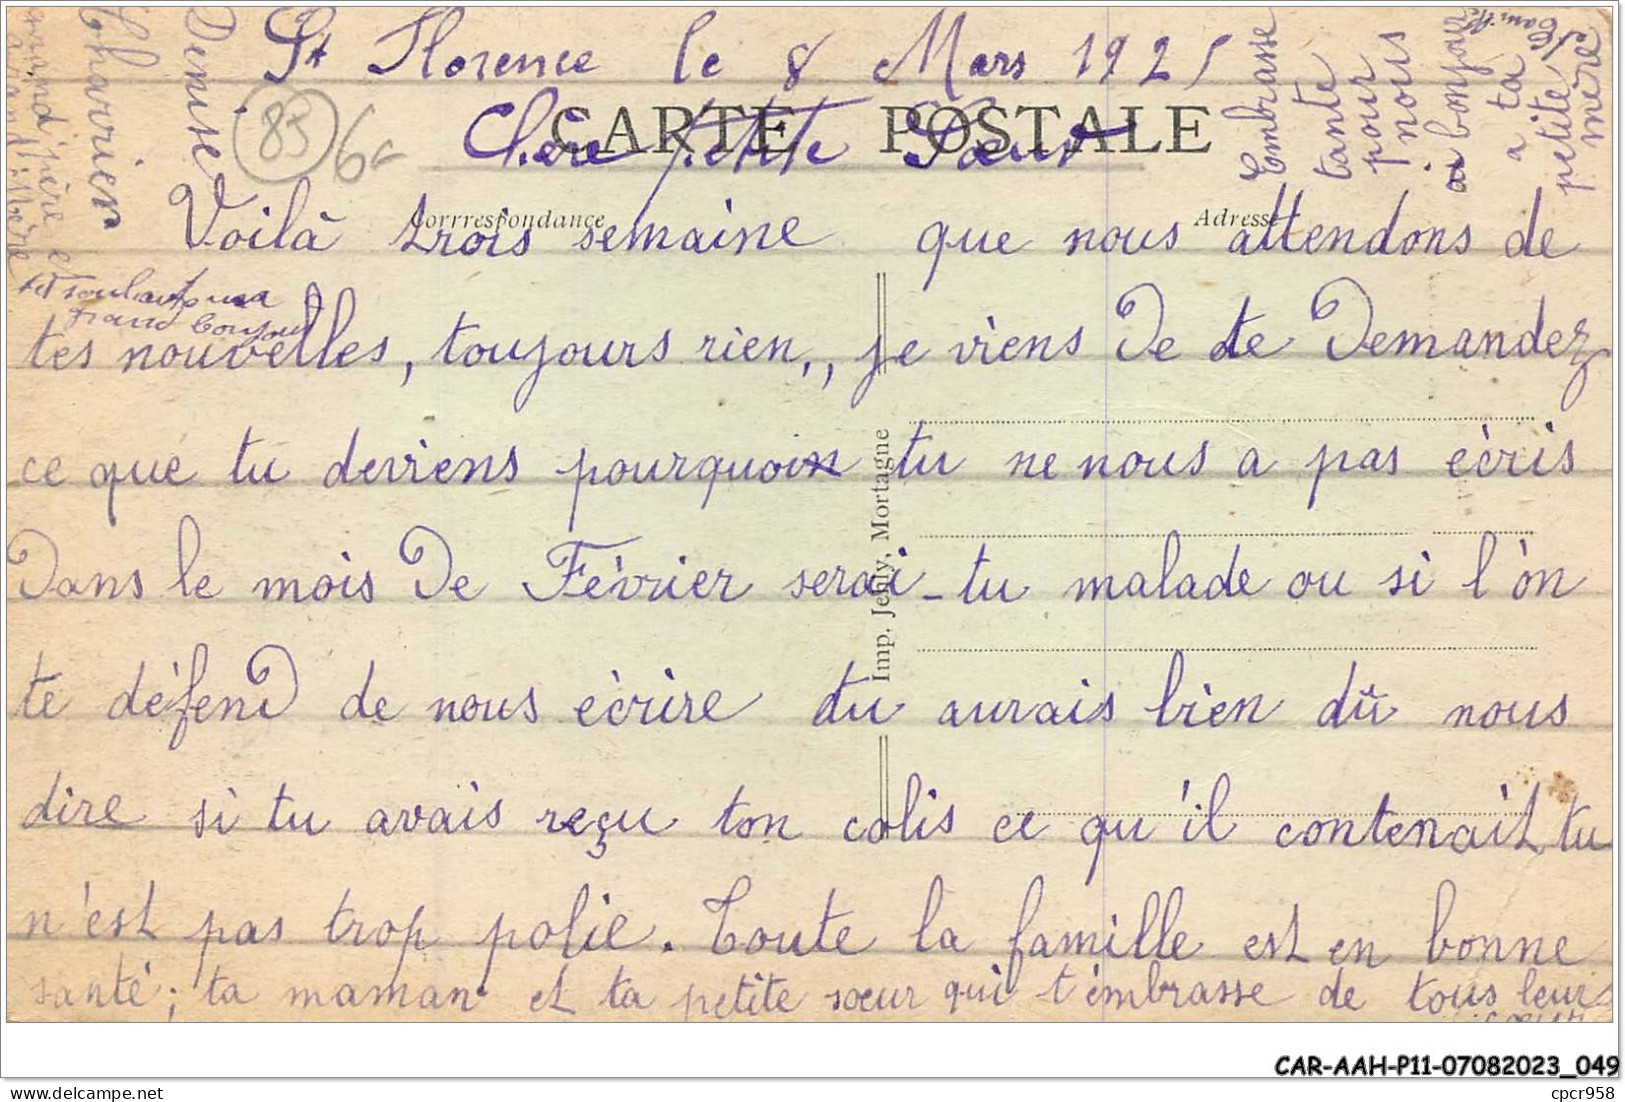 St Florence le 8 Mars 1925
CARTE POSTALE
Chère petite Sœur
Corrrespondance
Adresse
Voilà trois semaine que nous attendons de
tes nouvelles, toujours rien,, je viens De te Demander
ce que tu deviens pourquoi tu ne nous a pas écris
Dans le mois De Février serai-tu malade ou si l'on
te défend de nous écrire tu aurais bien dû nous
dire si tu avais reçu ton colis ce qu'il contenait tu
n'est pas trop polie. Toute la famille est en bonne
santé; ta maman et ta petite sœur qui t'embrasse de tous leurs
cœurs
Denise
Charrier
grand'père et
grand'Mère
Embrasse
tante
pour
nous
bonjour
a ta
petite
mère
Imp. Jehly, Mortagne
85
6€
CAR-AAH-P11-07082023_049
cpcr958